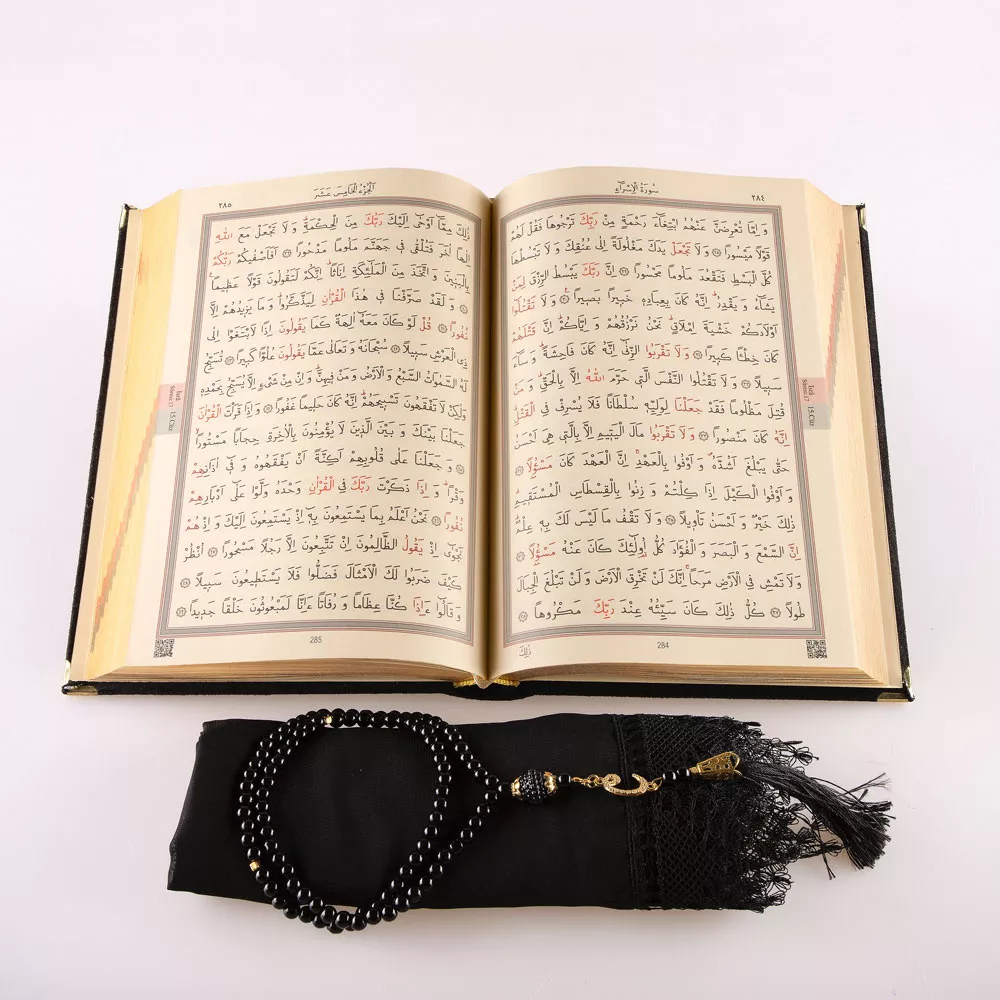 سُورَةُ الْاِسْرَاءِ
٢٨٤
وَ اِمَّا تُعْرِضَنَّ عَنْهُمُ ابْتِغَاءَ رَحْمَةٍ مِنْ رَبِّكَ تَرْجُوهَا فَقُلْ لَهُمْ
قَوْلاً مَيْسُوراً ﴿٢٨﴾ وَ لَا تَجْعَلْ يَدَكَ مَغْلُولَةً اِلٰى عُنُقِكَ وَ لَا تَبْسُطْهَا
كُلَّ الْبَسْطِ فَتَقْعُدَ مَلُوماً مَحْسُوراً ﴿٢٩﴾ اِنَّ رَبَّكَ يَبْسُطُ الرِّزْقَ لِمَنْ
يَشَاءُ وَ يَقْدِرُ اِنَّهُ كَانَ بِعِبَادِهِ خَبِيراً بَصِيراً ﴿٣٠﴾ وَ لَا تَقْتُلُوا
اَوْلَادَكُمْ خَشْيَةَ اِمْلَاقٍ نَحْنُ نَرْزُقُهُمْ وَ اِيَّاكُمْ اِنَّ قَتْلَهُمْ
كَانَ خِطْـًٔا كَبِيراً ﴿٣١﴾ وَ لَا تَقْرَبُوا الزِّنٰى اِنَّهُ كَانَ فَاحِشَةً وَ سَاءَ
سَبِيلاً ﴿٣٢﴾ وَ لَا تَقْتُلُوا النَّفْسَ الَّتِي حَرَّمَ اللّٰهُ اِلَّا بِالْحَقِّ وَ مَنْ
قُتِلَ مَظْلُوماً فَقَدْ جَعَلْنَا لِوَلِيِّهِ سُلْطَاناً فَلَا يُسْرِفْ فِي الْقَتْلِ
اِنَّهُ كَانَ مَنْصُوراً ﴿٣٣﴾ وَ لَا تَقْرَبُوا مَالَ الْيَتِيمِ اِلَّا بِالَّتِي هِيَ اَحْسَنُ
حَتّٰى يَبْلُغَ اَشُدَّهُ وَ اَوْفُوا بِالْعَهْدِ اِنَّ الْعَهْدَ كَانَ مَسْؤُلاً ﴿٣٤﴾
وَ اَوْفُوا الْكَيْلَ اِذَا كِلْتُمْ وَ زِنُوا بِالْقِسْطَاسِ الْمُسْتَقِيمِ
ذٰلِكَ خَيْرٌ وَ اَحْسَنُ تَأْوِيلاً ﴿٣٥﴾ وَ لَا تَقْفُ مَا لَيْسَ لَكَ بِهِ عِلْمٌ
اِنَّ السَّمْعَ وَ الْبَصَرَ وَ الْفُؤَادَ كُلُّ اُولٰئِكَ كَانَ عَنْهُ مَسْؤُلاً ﴿٣٦﴾
وَ لَا تَمْشِ فِي الْاَرْضِ مَرَحاً اِنَّكَ لَنْ تَخْرِقَ الْاَرْضَ وَ لَنْ تَبْلُغَ الْجِبَالَ
طُولاً ﴿٣٧﴾ كُلُّ ذٰلِكَ كَانَ سَيِّئُهُ عِنْدَ رَبِّكَ مَكْرُوهاً ﴿٣٨﴾
284
ذٰلِكَ
İsrâ
Sûresi 17
15.Cüz
اَلْجُزْءُ الْخَامِسَ عَشَرَ
٢٨٥
ذٰلِكَ مِمَّا اَوْحٰى اِلَيْكَ رَبُّكَ مِنَ الْحِكْمَةِ وَ لَا تَجْعَلْ مَعَ اللّٰهِ
اِلٰهاً اٰخَرَ فَتُلْقٰى فِي جَهَنَّمَ مَلُوماً مَدْحُوراً ﴿٣٩﴾ اَفَاَصْفٰيكُمْ رَبُّكُمْ
بِالْبَنِينَ وَ اتَّخَذَ مِنَ الْمَلٰئِكَةِ اِنَاثاً اِنَّكُمْ لَتَقُولُونَ قَوْلاً عَظِيماً
﴿٤٠﴾ وَ لَقَدْ صَرَّفْنَا فِي هٰذَا الْقُرْاٰنِ لِيَذَّكَّرُوا وَ مَا يَزِيدُهُمْ اِلَّا
نُفُوراً ﴿٤١﴾ قُلْ لَوْ كَانَ مَعَهُ اٰلِهَةٌ كَمَا يَقُولُونَ اِذاً لَابْتَغَوْا اِلٰى
ذِي الْعَرْشِ سَبِيلاً ﴿٤٢﴾ سُبْحَانَهُ وَ تَعَالٰى عَمَّا يَقُولُونَ عُلُوًّا كَبِيراً ﴿٤٣﴾ تُسَبِّحُ
لَهُ السَّمٰوَاتُ السَّبْعُ وَ الْاَرْضُ وَ مَنْ فِيهِنَّ وَ اِنْ مِنْ شَيْءٍ اِلَّا يُسَبِّحُ بِحَمْدِهِ
وَلٰكِنْ لَا تَفْقَهُونَ تَسْبِيحَهُمْ اِنَّهُ كَانَ حَلِيماً غَفُوراً ﴿٤٤﴾ وَ اِذَا قَرَأْتَ الْقُرْاٰنَ
جَعَلْنَا بَيْنَكَ وَ بَيْنَ الَّذِينَ لَا يُؤْمِنُونَ بِالْاٰخِرَةِ حِجَاباً مَسْتُوراً
﴿٤٥﴾ وَ جَعَلْنَا عَلٰى قُلُوبِهِمْ اَكِنَّةً اَنْ يَفْقَهُوهُ وَ فِي اٰذَانِهِمْ
وَقْراً وَ اِذَا ذَكَرْتَ رَبَّكَ فِي الْقُرْاٰنِ وَحْدَهُ وَلَّوْا عَلٰى اَدْبَارِهِمْ
نُفُوراً ﴿٤٦﴾ نَحْنُ اَعْلَمُ بِمَا يَسْتَمِعُونَ بِهِ اِذْ يَسْتَمِعُونَ اِلَيْكَ وَ اِذْ هُمْ
نَجْوٰى اِذْ يَقُولُ الظَّالِمُونَ اِنْ تَتَّبِعُونَ اِلَّا رَجُلاً مَسْحُوراً ﴿٤٧﴾ اُنْظُرْ
كَيْفَ ضَرَبُوا لَكَ الْاَمْثَالَ فَضَلُّوا فَلَا يَسْتَطِيعُونَ سَبِيلاً ﴿٤٨﴾
وَ قَالُوا ءَاِذَا كُنَّا عِظَاماً وَ رُفَاتاً ءَاِنَّا لَمَبْعُوثُونَ خَلْقاً جَدِيداً ﴿٤٩﴾
285
İsrâ
Sûresi 17
15.Cüz